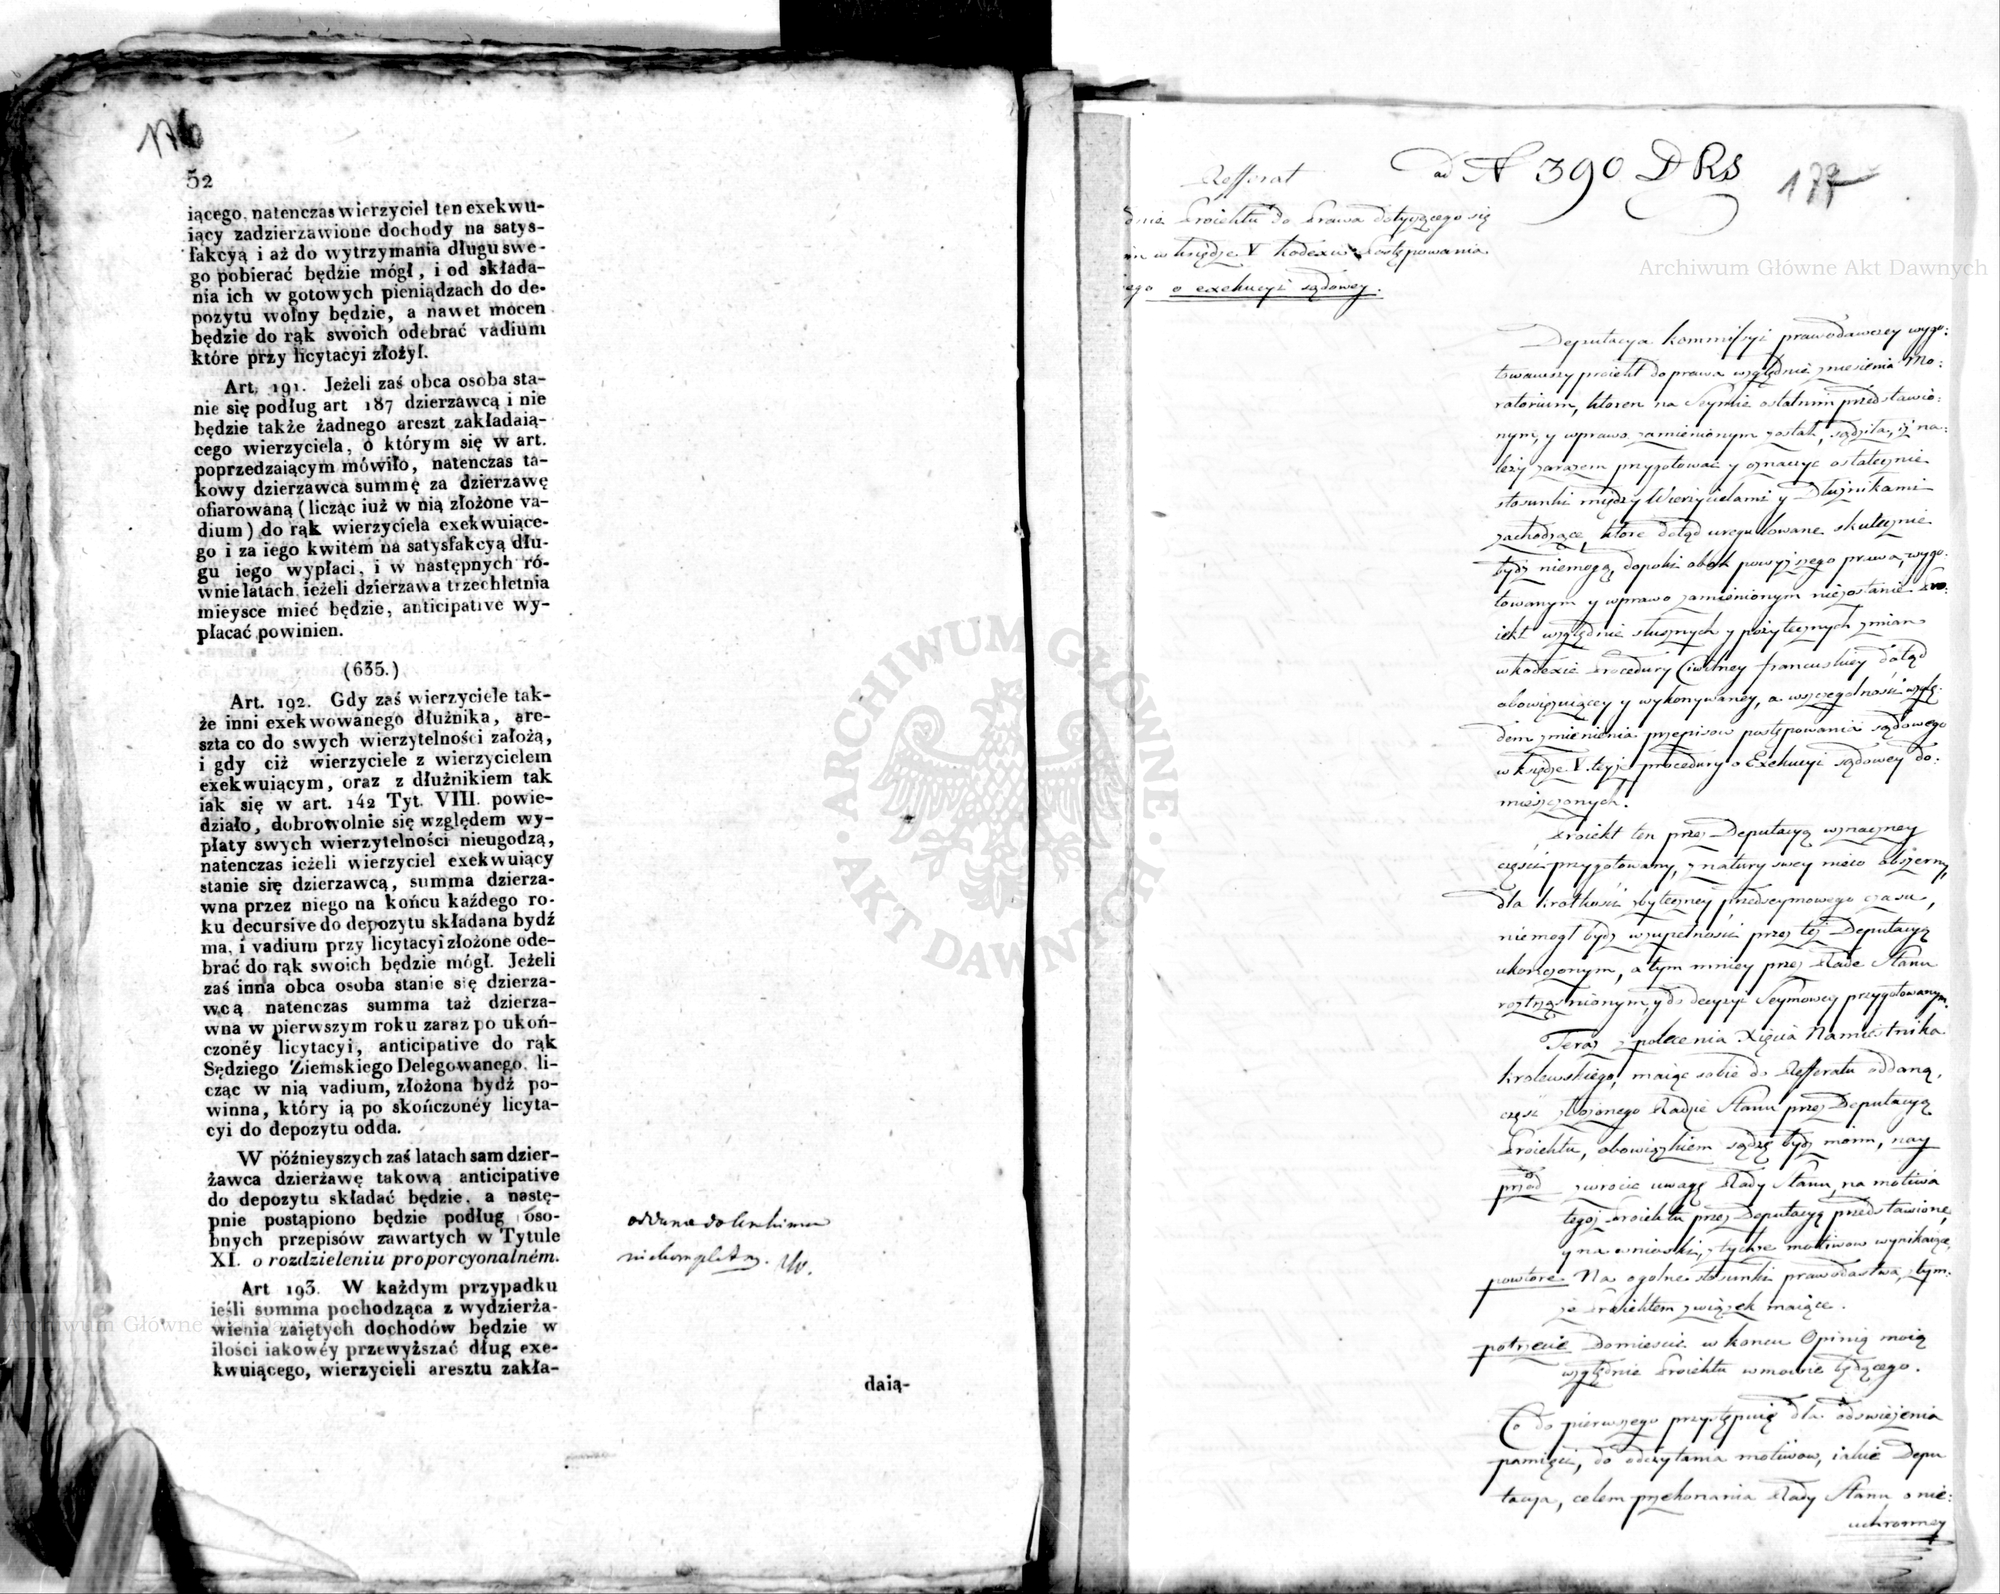 176
52
iącego, natenczas wierzyciel ten exekwu-
iący zadzierzawione dochody na satys-
fakcyą i aż do wytrzymania długu swe-
go pobierać będzie mógł, i od składa-
nia ich w gotowych pieniądzach do de-
pozytu wolny będzie, a nawet mocen
będzie do rąk swoich odebrać vadium
które przy licytacyi złożył.
Art. 191. Jeżeli zaś obca osoba sta-
nie się podług art 187 dzierzawcą i nie
będzie także żadnego areszt zakładaią-
cego wierzyciela, o którym się w art.
poprzedzaiącym mówiło, natenczas ta-
kowy dzierzawca summę za dzierzawę
ofiarowaną (licząc iuż w nią złożone va-
dium) do rąk wierzyciela exekwuiące-
go i za iego kwitem na satysfakcyą dłu-
gu iego wypłaci, i w następnych ró-
wnie latach, ieżeli dzierzawa trzechletnia
mieysce mieć będzie, anticipative wy-
płacać powinien.
(635.)
Art. 192. Gdy zaś wierzyciele tak-
że inni exekwowanego dłużnika, are-
szta co do swych wierzytelności założą,
i gdy ciż wierzyciele z wierzycielem
exekwuiącym, oraz z dłużnikiem tak
iak się w art. 142 Tyt. VIII. powie-
działo, dobrowolnie się względem wy-
płaty swych wierzytelności nieugodzą,
natenczas ieżeli wierzyciel exekwuiący
stanie się dzierzawcą, summa dzierza-
wna przez niego na końcu każdego ro-
ku decursive do depozytu składana bydź
ma, i vadium przy licytacyi złożone ode-
brać do rąk swoich będzie mógł. Jeżeli
zaś inna obca osoba stanie się dzierza-
wcą natenczas summa taż dzierza-
wna w pierwszym roku zaraz po ukoń-
czonéy licytacyi, anticipative do rąk
Sędziego Ziemskiego Delegowanego, li-
cząc w nią vadium, złożona bydź po-
winna, który ią po skończonéy licyta-
cyi do depozytu odda.
W późnieyszych zaś latach sam dzier-
żawca dzierżawę takową anticipative
do depozytu składać będzie, a nastę-
pnie postąpiono będzie podług oso-
bnych przepisów zawartych w Tytule
XI. o rozdzieleniu proporcyonalném.
Art 193. W każdym przypadku
ieśli summa pochodząca z wydzierża-
wienia zaiętych dochodów będzie w
ilości iakowéy przewyższać dług exe-
kwuiącego, wierzycieli aresztu zakła-
daią-
oddane do Archiwum
niekompletny.
ad N 390 DRS
177
Refferat
Proiektu do Prawa dotyczącego się
w księdze V kodexu Postępowania
o exekucyi sądowey.
Deputacya kommissyi prawodawczey wygo:
towawszy proiekt do prawa względnie zniesienia Mo:
ratorium, ktoren na Seymie ostatnim przedstawio:
nym, y wprawo zamienionym został, sądziła, iż na:
leży zarazem przygotować y oznaczyc ostatecznie
stosunki między Wierzycielami y Dłużnikami
zachodzące, ktore dotąd uregulowane skutecznie
bydź niemogą, dopoki obok powyższego prawa, wygo:
towanym y wprawo zamienionym niezostanie Pro:
iekt względnie słusznych y pożytecznych zmian
w kodexie Procedury Cywilney francuskiey dotąd
obowięzuiącey y wykonywaney, a wszczegolności wzglę:
dem zmienienia przepisow postępowania sądowego
w księdze V. teyże procedury o Exekucyi sądowey do:
mieszczonych.
Proiekt ten przez Deputacyą wznaczney
części przygotowany, z natury swey nieco obszerny,
dla krotkości zbyteczney przedseymowego czasu,
niemogł bydź wzupełności przez też Deputacyą
ukończonym, a tym mniey przez Radę Stanu
roztrząśnionym, y do decyzyi Seymowey przygotowanym.
Teraz z polecenia Xięcia Namiestnika
Krolewskiego, maiąc sobie do Refferatu oddaną,
część złożonego Radzie Stanu przez Deputacyą
Proiektu, obowiązkiem sądzę bydź moim, nay
przod zwrocić uwagę Rady Stanu na motiwa
tegoż Proiektu przez Deputacyą przedstawione,
y na wnioski, z tychże motiwow wynikaiące,
powtore Na ogolne stosunki prawodastwa, z tym:
że Proiektem związek maiące.
potrzecie Domieścić w koncu Opinią moią
względnie Proiektu w mowie będącego.
Co do pierwszego przystępuię dla odświeżenia
pamięci, do odczytania motiwow, iakie Depu
tacya, celem przekonania Rady Stanu o nie:
uchronney
Archiwum Główne Akt Dawnych
Archiwum Główne Akt Dawnych
ARCHIWUM GŁÓWNE · AKT DAWNYCH ·